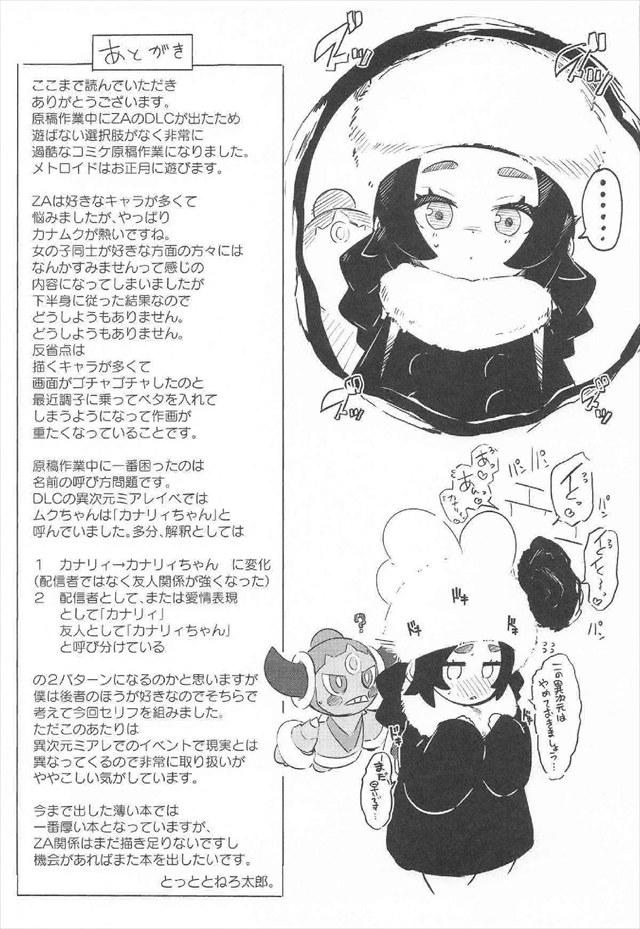 あとがき
ここまで読んでいただき
ありがとうございます。
原稿作業中にZAのDLCが出たため
遊ばない選択肢がなく非常に
過酷なコミケ原稿作業になりました。
メトロイドはお正月に遊びます。
ZAは好きなキャラが多くて
悩みましたが、やっぱり
カナムクが熱いですね。
女の子同士が好きな方面の方々には
なんかすみませんって感じの
内容になってしまいましたが
下半身に従った結果なので
どうしようもありません。
どうしようもありません。
反省点は
描くキャラが多くて
画面がゴチャゴチャしたのと
最近調子に乗ってベタを入れて
しまうようになって作画が
重たくなっていることです。
原稿作業中に一番困ったのは
名前の呼び方問題です。
DLCの異次元ミアレイベでは
ムクちゃんは「カナリィちゃん」と
呼んでいました。多分、解釈としては
1 カナリィ→カナリィちゃん に変化
(配信者ではなく友人関係が強くなった)
2 配信者として、または愛情表現
として「カナリィ」
友人として「カナリィちゃん」
と呼び分けている
の2パターンになるのかと思いますが
僕は後者のほうが好きなのでそちらで
考えて今回セリフを組みました。
ただこのあたりは
異次元ミアレでのイベントで現実とは
異なってくるので非常に取り扱いが
ややこしい気がしています。
今まで出した薄い本では
一番厚い本となっていますが、
ZA関係はまだ描き足りないですし
機会があればまた本を出したいです。
とっととねろ太郎。
……
パン
パン
パン
ドキ
ドキ
?
異次元は
やめておきましょっ…
まだ
早いです…